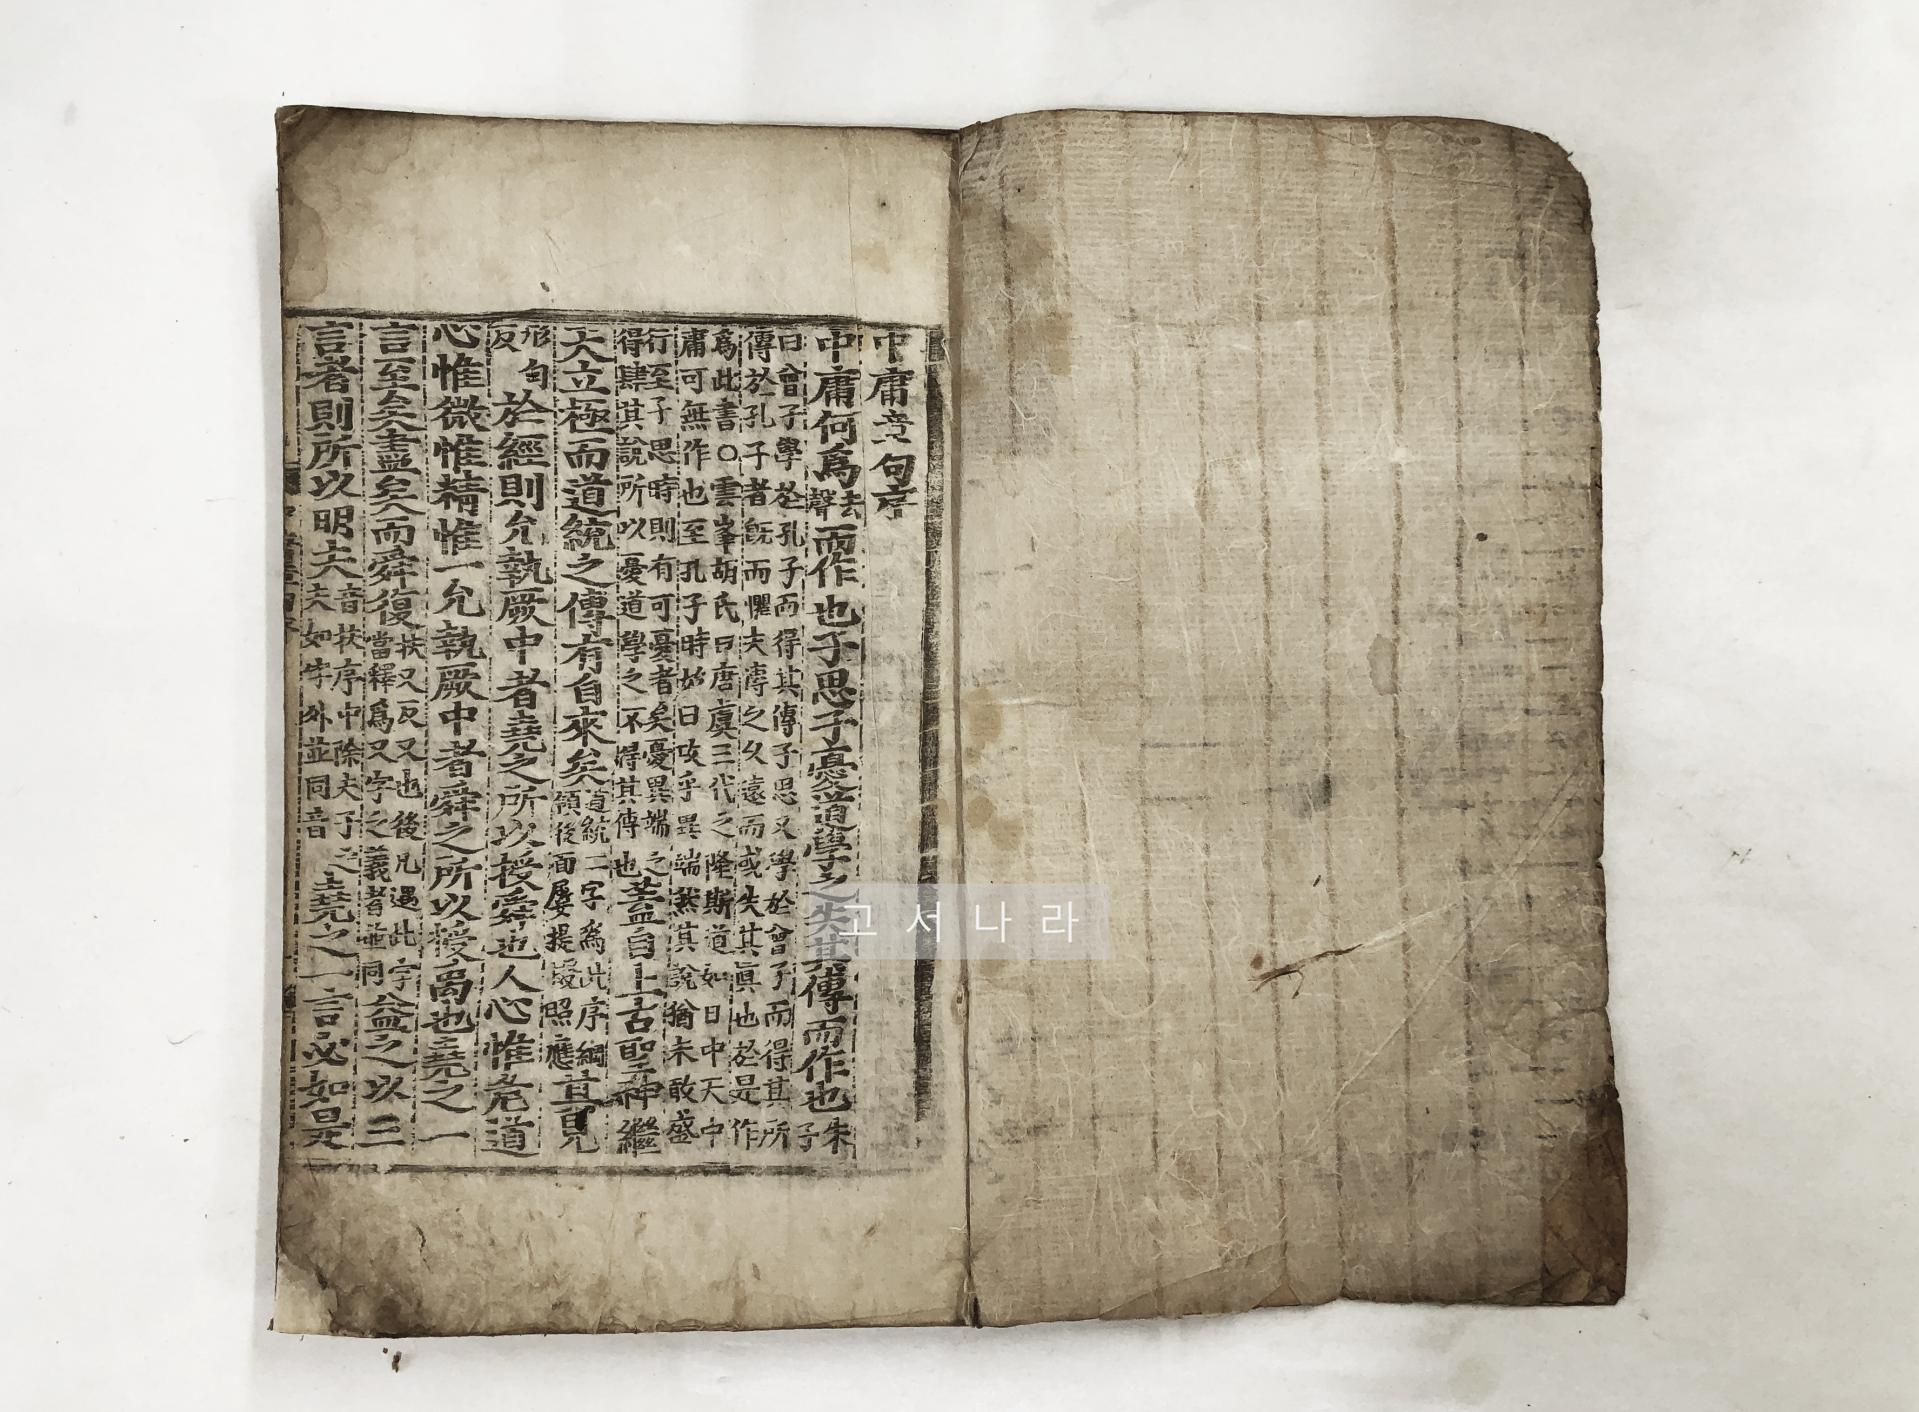 中庸章句序
中庸何爲去聲而作也子思子憂道學之失其傳而作也朱子
曰曾子學於孔子而得其傳子思又學於曾子而得其所
傳於孔子者旣而懼夫傳之久遠而或失其眞也於是作
爲此書○雲峯胡氏曰唐虞三代之隆斯道如日中天中
庸可無作也至孔子時始曰攻乎異端然其說猶未敢盛
行至子思時則有可憂者矣憂異端之得肆其說所以憂道學之不得其傳也蓋自上古聖神繼
天立極而道統之傳有自來矣道統二字爲此序綱領後面屢提掇照應其見
形甸反於經則允執厥中者堯之所以授舜也人心惟危道
心惟微惟精惟一允執厥中者舜之所以授禹也堯之一
言至矣盡矣而舜復扶又反又也後凡遇此字當釋爲又字之義者並同益之以三
言者則所以明夫音扶序中除夫子之夫如字外並同音堯之一言必如是
고서나라